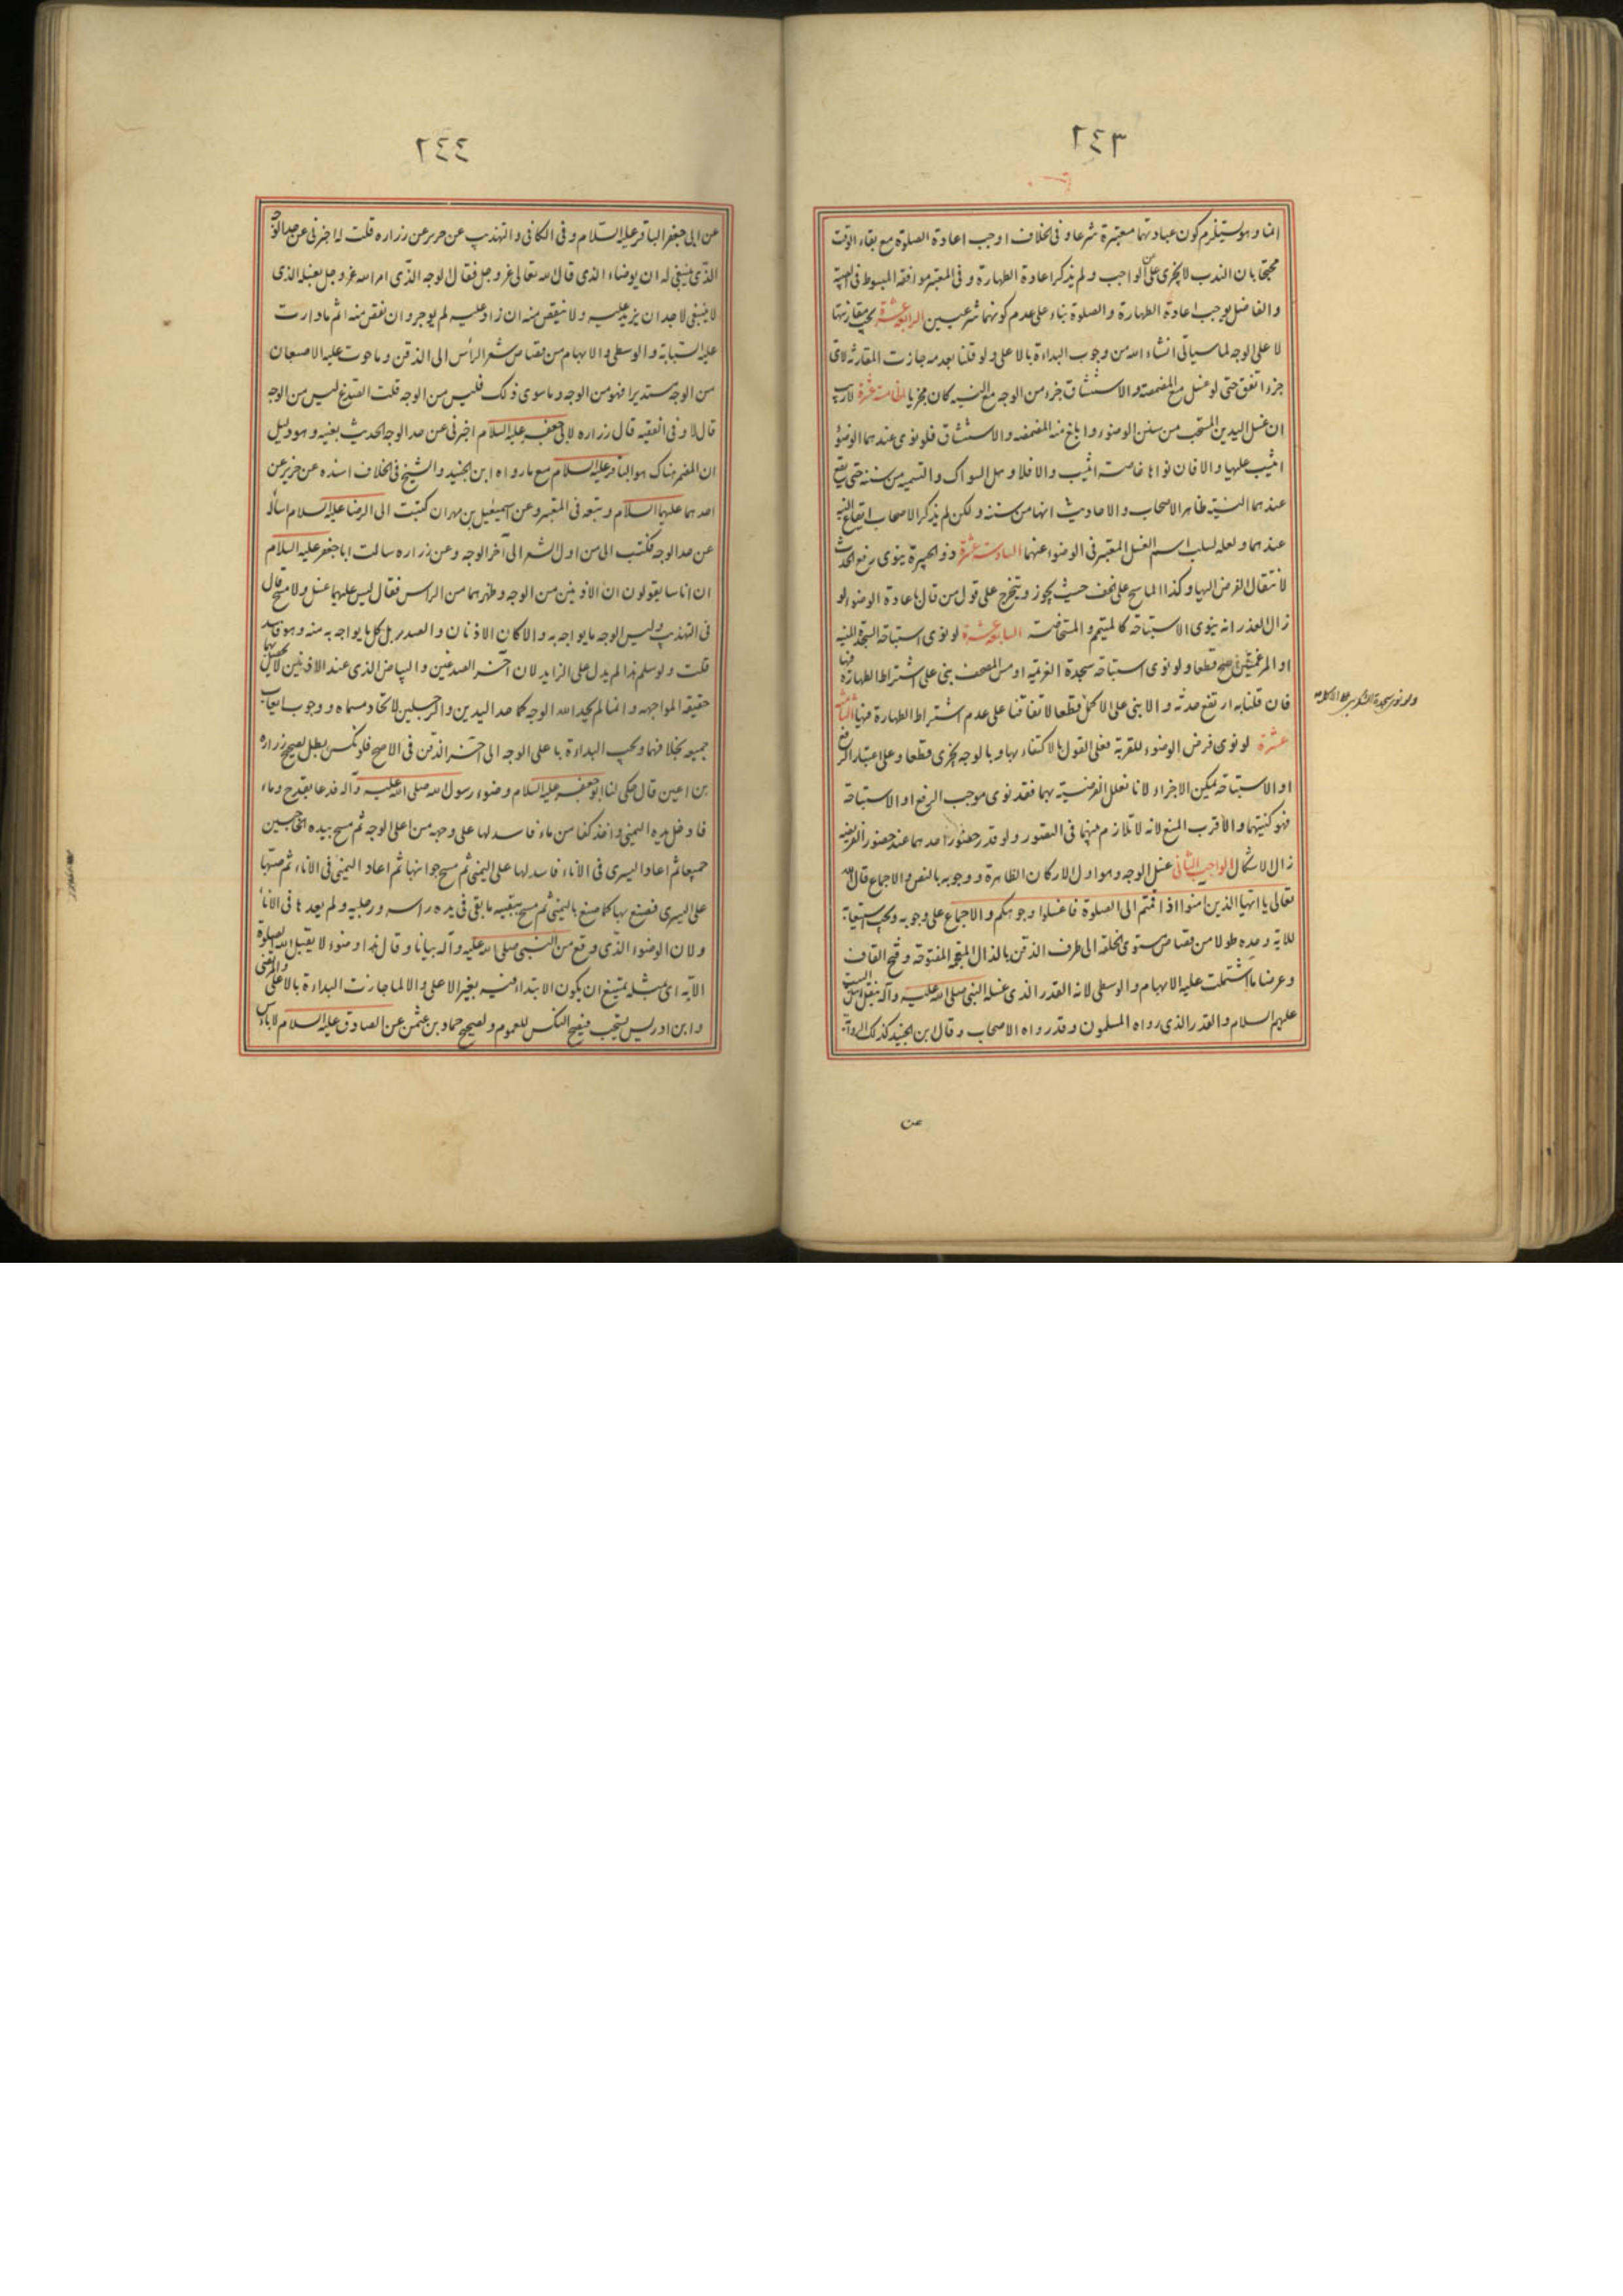 ٢٤٣
انما وهو يستلزم كون عبادتهما معتبرة شرعا و فى الخلاف اوجب اعادة الصلوة مع بقاء الوقت
محتجا بان الندب لا يجزى عن الواجب و لم يذكر اعادة الطهارة و فى المعتبر موافقة المبسوط فى الهبة
و الفاضل يوجب اعادة الطهارة و الصلوة بناء على عدم كونهما شرعيين الرابعة عشرة يجب مقارنتها
لا على الوجه لما سياتى انشاء الله من وجوب البداءة بالاعلى و لو قلنا بعدمه جازت المقارنة لاى
جزء اتفق حتى لو غسل مع المضمضة و الاستنشاق جزء من الوجه مع النية كان مجزيا الخامسة عشرة لا ريب
ان غسل اليدين المستحب من سنن الوضوء و ابلغ منه المضمضه و الاستنشاق فلو نوى عندهما الوضوء
اثيب عليها و الا فان نواها خاصة اثيب و الا فلا و هل السواك و التسميه من سننه حتى يقع
عندهما النية ظاهر الاصحاب و الاحاديث انهما من سننه و لكن لم يذكر الاصحاب ايقاع النية
عندهما و لعله لسلب اسم الغسل المعتبر فى الوضوء عنهما السادسة عشرة ذو الجبيرة ينوى رفع الحدث
لانتقال الفرض اليها و كذا الماسح على الخف حيث يجوز و يتخرج على قول من قال باعادة الوضوء لو
زال العذر انه ينوى الاستباحة كالمتيمم و المستحاضة السابعة عشرة لو نوى استباحة السجدة المنسية
او المرغمتين صح قطعا و لو نوى استباحة سجدة العزيمة او مس المصحف بنى على اشتراط الطهارة فيها
فان قلنا به ارتفع حدثه و الا بنى على الاكمل قطعا لاتفاقنا على عدم اشتراط الطهارة فيها الثامنة
عشرة لو نوى فرض الوضوء للقربة فعلى القول بالاكتفاء بها و بالوجه يجزى قطعا و على اعتبار الرفع
او الاستباحة يمكن الاجزاء لانا نعلل الفرضية بهما فقد نوى موجب الرفع او الاستباحة
فهو كنيتهما و الاقرب المنع لانه لا تلازم بينهما فى التصور و لو قدر حضور احدهما عند حضور الفرضيه
زال الاشكال الواجب الثانى غسل الوجه و هو اول الاركان الظاهرة و وجوبه بالنص و الاجماع قال الله
تعالى يا ايها الذين امنوا اذا قمتم الى الصلوة فاغسلوا وجوهكم و الاجماع على وجوبه و يجب استيعابه
للآية و حده طولا من قصاص مستوى الخلقة الى طرف الذقن بالذال المعجمة المفتوحة و فتح القاف
و عرضا ما اشتملت عليه الابهام و الوسطى لانه القدر الذى غسله النبى صلى الله عليه و آله بنقل اهل البيت
عليهم السلام و القدر الذى رواه المسلمون و قد رواه الاصحاب و قال ابن الجنيد كذلك الرواية
عن
٢٤٤
عن ابى جعفر الباقر عليه السلام و فى الكافى و التهذيب عن حريز عن زراره قلت له اخبرنى عن حد الوجه
الذى ينبغى له ان يوضاء الذى قال الله تعالى عز و جل فقال الوجه الذى امر الله عز و جل بغسله الذى
لا ينبغى لاحد ان يزيد عليه و لا ينقص منه ان زاد عليه لم يوجر و ان نقص منه اثم ما دارت
عليه السبابة و الوسطى و الابهام من قصاص شعر الرأس الى الذقن و ما حوت عليه الاصبعان
من الوجه مستديرا فهو من الوجه و ما سوى ذلك فليس من الوجه قلت الصدغ ليس من الوجه
قال لا و فى الفقيه قال زراره لابى جعفر عليه السلام اخبرنى عن حد الوجه الحديث بعينه و هو دليل
ان المضمر هناك هو الباقر عليه السلام مع ما رواه ابن الجنيد و الشيخ فى الخلاف اسنده عن حريز عن
احدهما عليهما السلام و تبعه فى المعتبر و عن اسمعيل بن مهران كتبت الى الرضا عليه السلام اسأله
عن حد الوجه فكتب الى من اول الشعر الى آخر الوجه و عن زراره سالت ابا جعفر عليه السلام
ان اناسا يقولون ان الاذنين من الوجه و ظهرهما من الراس فقال ليس عليهما غسل و لا مسح قال
فى التهذيب و ليس الوجه ما يواجه به و الا كان الاذنان و الصدر بل كل ما يواجه به منه و هو فاسد
قلت و لو سلم هذا لم يدل على الزايد لان آخر الصدغين و البياض الذى عند الاذنين لا تحصل بهما
حقيقة المواجهه و انما لم يحد الله الوجه كما حد اليدين و الرجلين لاتحاد مسماه و وجوب ايعاب
جميعه بخلافهما و يجب البداءة باعلى الوجه الى آخر الذقن فى الاصح فلو نكس بطل لصحيح زراره
بن اعين قال حكى لنا ابو جعفر عليه السلام وضوء رسول الله صلى الله عليه و آله فدعا بقدح و ماء
فادخل يده اليمنى و اخذ كفا من ماء فاسدلها على وجهه من اعلى الوجه ثم مسح بيده الحاجبين
جميعا ثم اعاد اليسرى فى الاناء فاسدلها على اليمنى ثم مسح جوانبها ثم اعاد اليمنى فى الاناء ثم صبها
على اليسرى فصنع بها كما صنع باليمنى ثم مسح ببقية ما بقى فى يده راسه و رجليه و لم يعدها فى الاناء
و لان الوضوء الذى وقع من النبى صلى الله عليه و آله بيانا و قال هذا وضوء لا يقبل الله الصلوة
الا به اى بمثله يمتنع ان يكون الابتداء فيه بغير الاعلى و الا لما جازت البداءة بالاعلى و المرتضى
و ابن ادريس يستحب فيصح النكس للعموم و لصحيح حماد بن عثمن عن الصادق عليه السلام لا باس